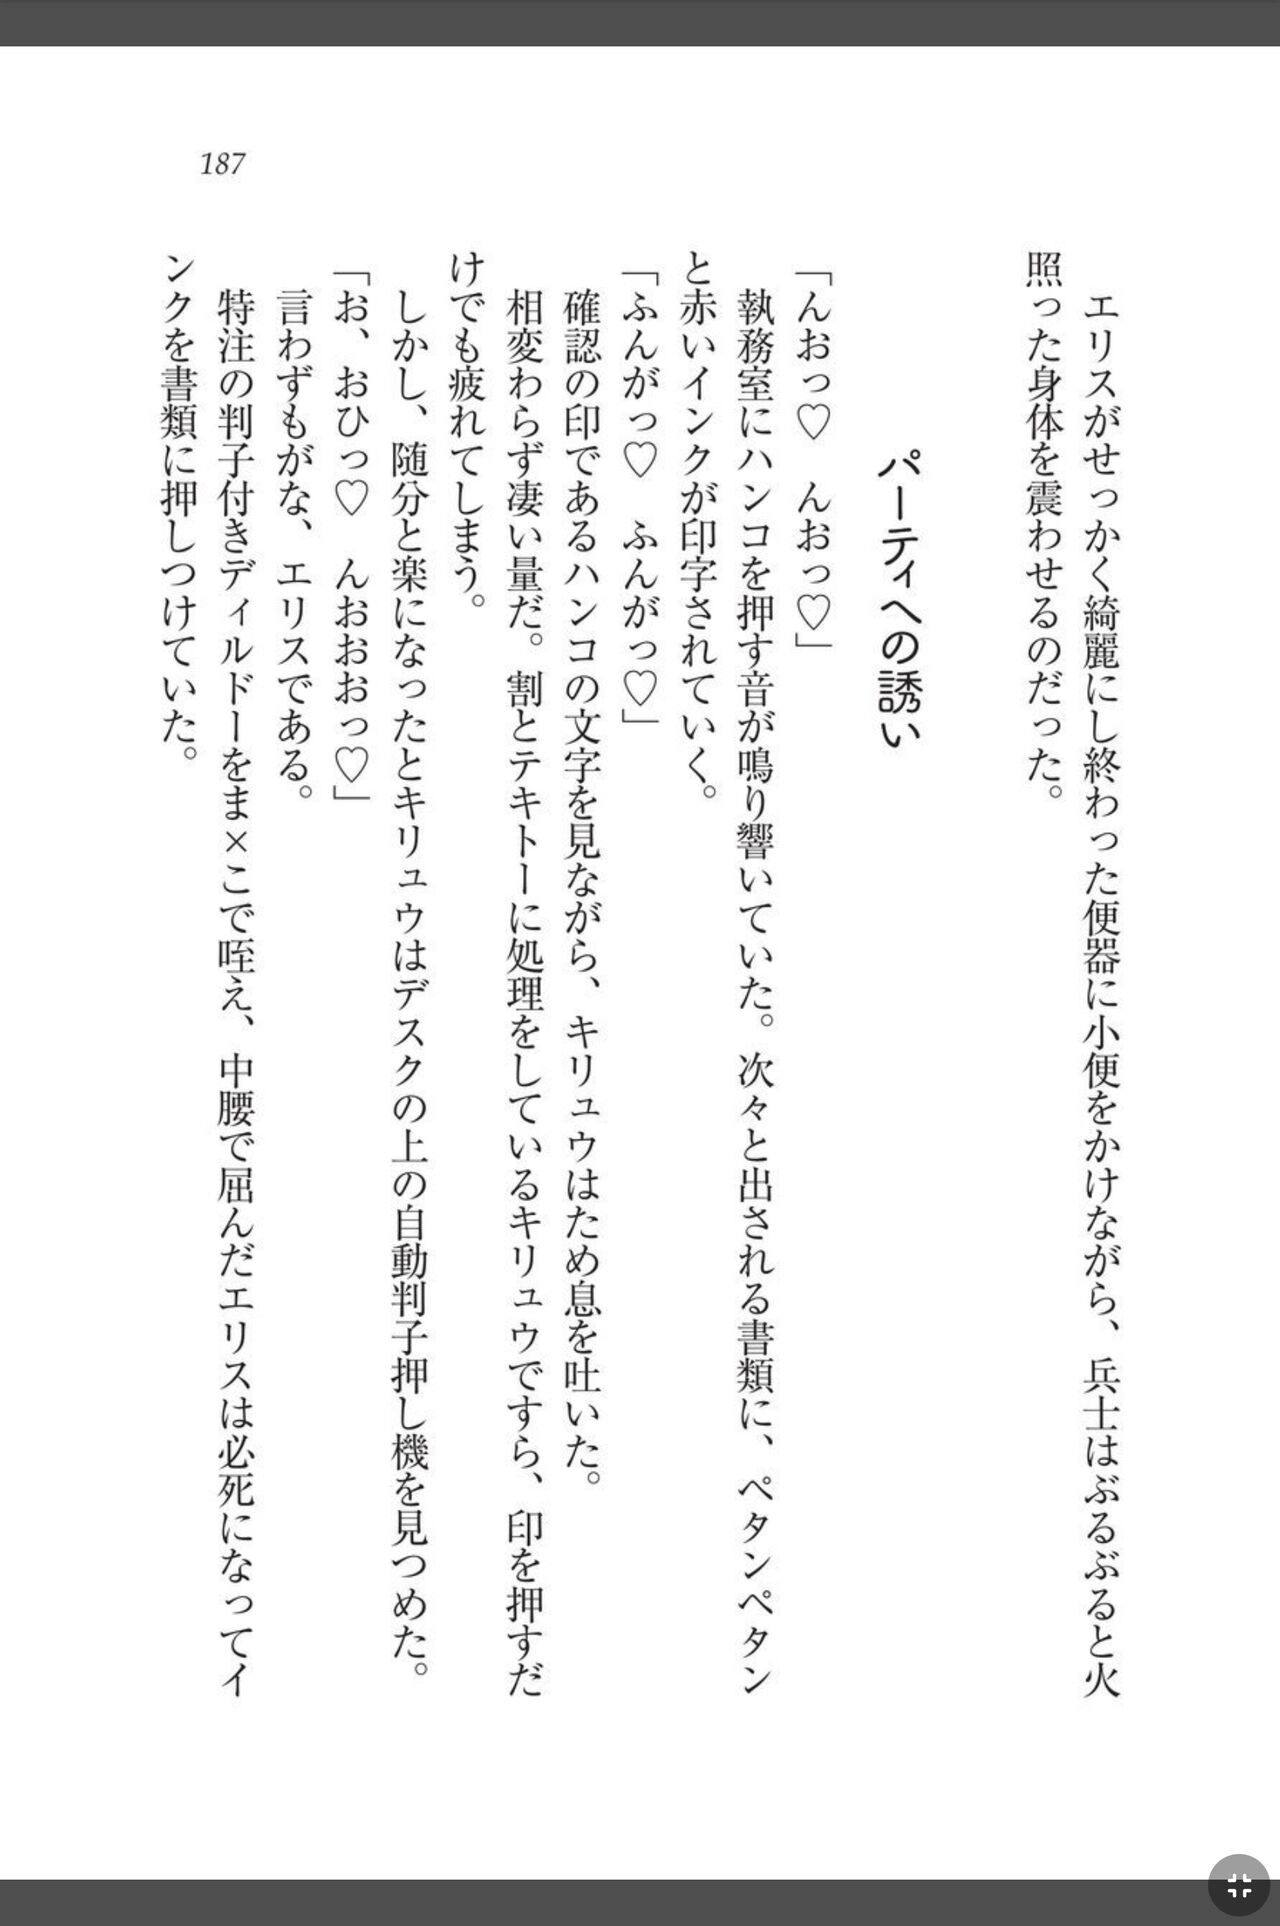 187
エリスがせっかく綺麗にし終わった便器に小便をかけながら、兵士はぶるぶると火
照った身体を震わせるのだった。
パーティへの誘い
「んおっ♡　んおっ♡」
執務室にハンコを押す音が鳴り響いていた。次々と出される書類に、ペタンペタン
と赤いインクが印字されていく。
「ふんがっ♡　ふんがっ♡」
確認の印であるハンコの文字を見ながら、キリュウはため息を吐いた。
相変わらず凄い量だ。割とテキトーに処理をしているキリュウですら、印を押すだ
けでも疲れてしまう。
しかし、随分と楽になったとキリュウはデスクの上の自動判子押し機を見つめた。
「お、おひっ♡　んおおおっ♡」
言わずもがな、エリスである。
特注の判子付きディルドーをま×こで咥え、中腰で屈んだエリスは必死になってイ
ンクを書類に押しつけていた。